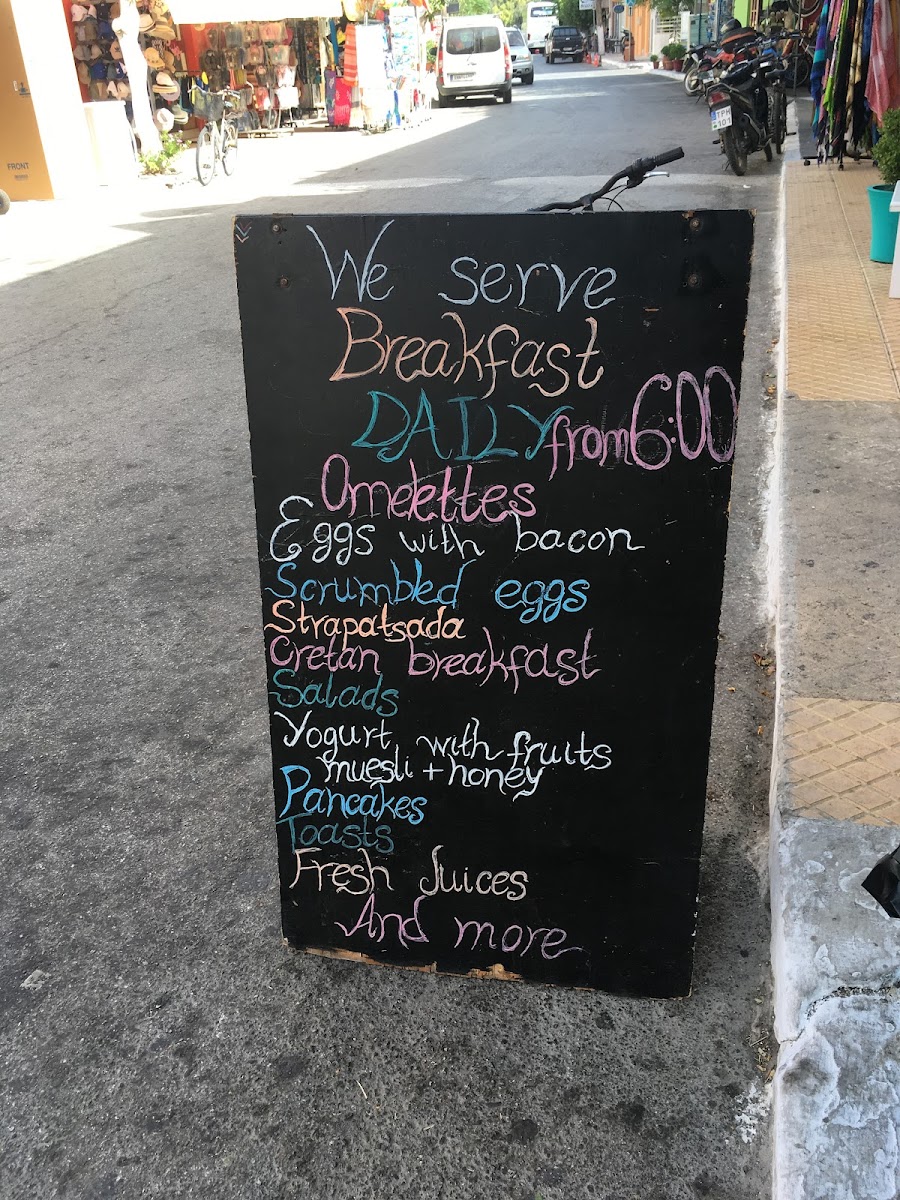 We serve
Breakfast
DAILY from 6:00
Omelettes
Eggs with bacon
Scrumbled eggs
Strapatsada
Cretan breakfast
Salads
Yogurt with fruits
muesli + honey
Pancakes
Toasts
Fresh Juices
And more
FRONT